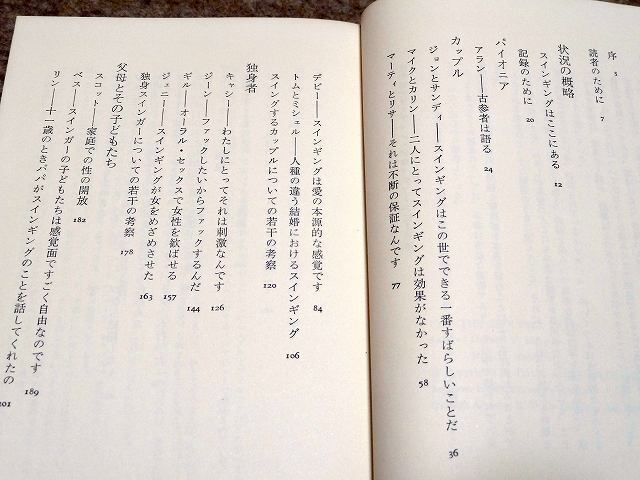 序 5
読者のために 7
状況の概略
スインギングはここにある 12
記録のために 20
パイオニア
アラン——古参者は語る 24
カップル
ジョンとサンディ——スインギングはこの世でできる一番すばらしいことだ 36
マイクとカリン——二人にとってスインギングは効果がなかった 58
マーティとリサ——それは不断の保証なんです 77
デビー——スインギングは愛の本源的な感覚です 84
トムとミシェル——人種の違う結婚におけるスインギング 106
スイングするカップルについての若干の考察 120
独身者
キャシー——わたしにとってそれは刺激なんです 126
ジーン——ファックしたいからファックするんだ 144
ギル——オーラル・セックスで女性を歓ばせる 157
ジェニー——スインギングが女をめざめさせた 163
独身スインガーについての若干の考察 178
父母とその子どもたち
スコット——家庭での性の開放 182
ベス——スインガーの子どもたちは感覚面ですごく自由なのです 189
リン——十一歳のときパパがスインギングのことを話してくれたの 201